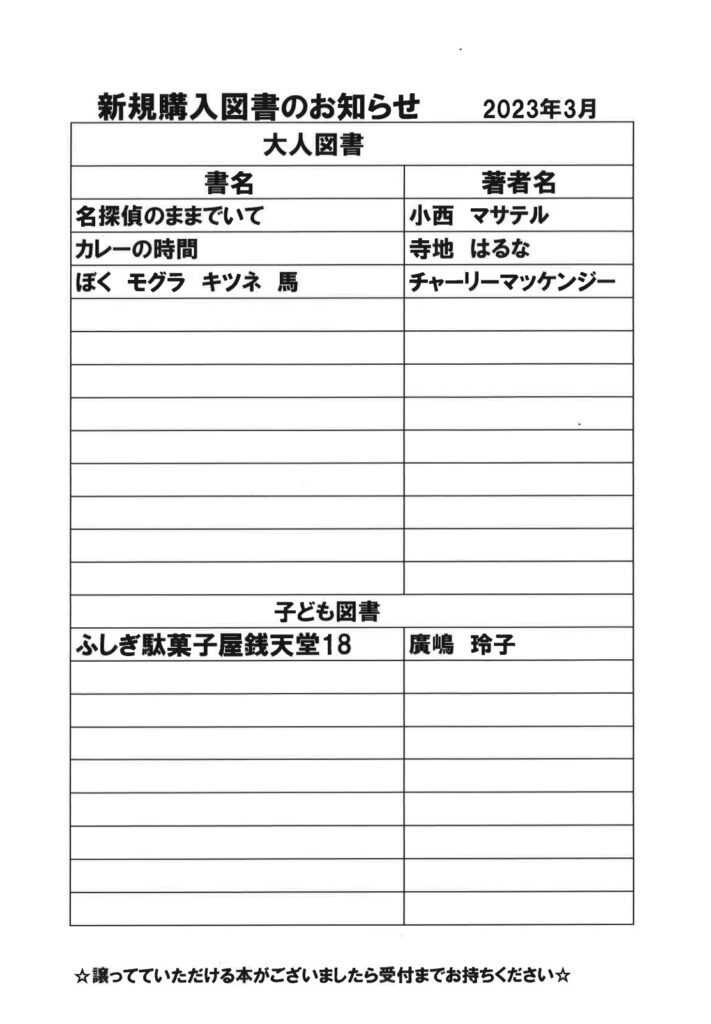 新規購入図書のお知らせ 2023年3月
大人図書
書名 著者名
名探偵のままでいて 小西 マサテル
カレーの時間 寺地 はるな
ぼく モグラ キツネ 馬 チャーリーマッケンジー
子ども図書
ふしぎ駄菓子屋銭天堂18 廣嶋 玲子
☆譲ってていただける本がございましたら受付までお持ちください☆